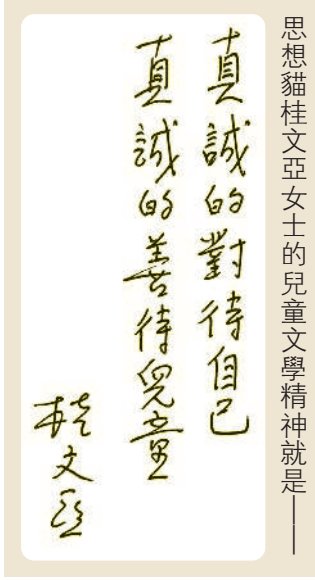 思想貓桂文亞女士的兒童文學精神就是——
真誠的對待自己
真誠的善待兒童
桂文亞